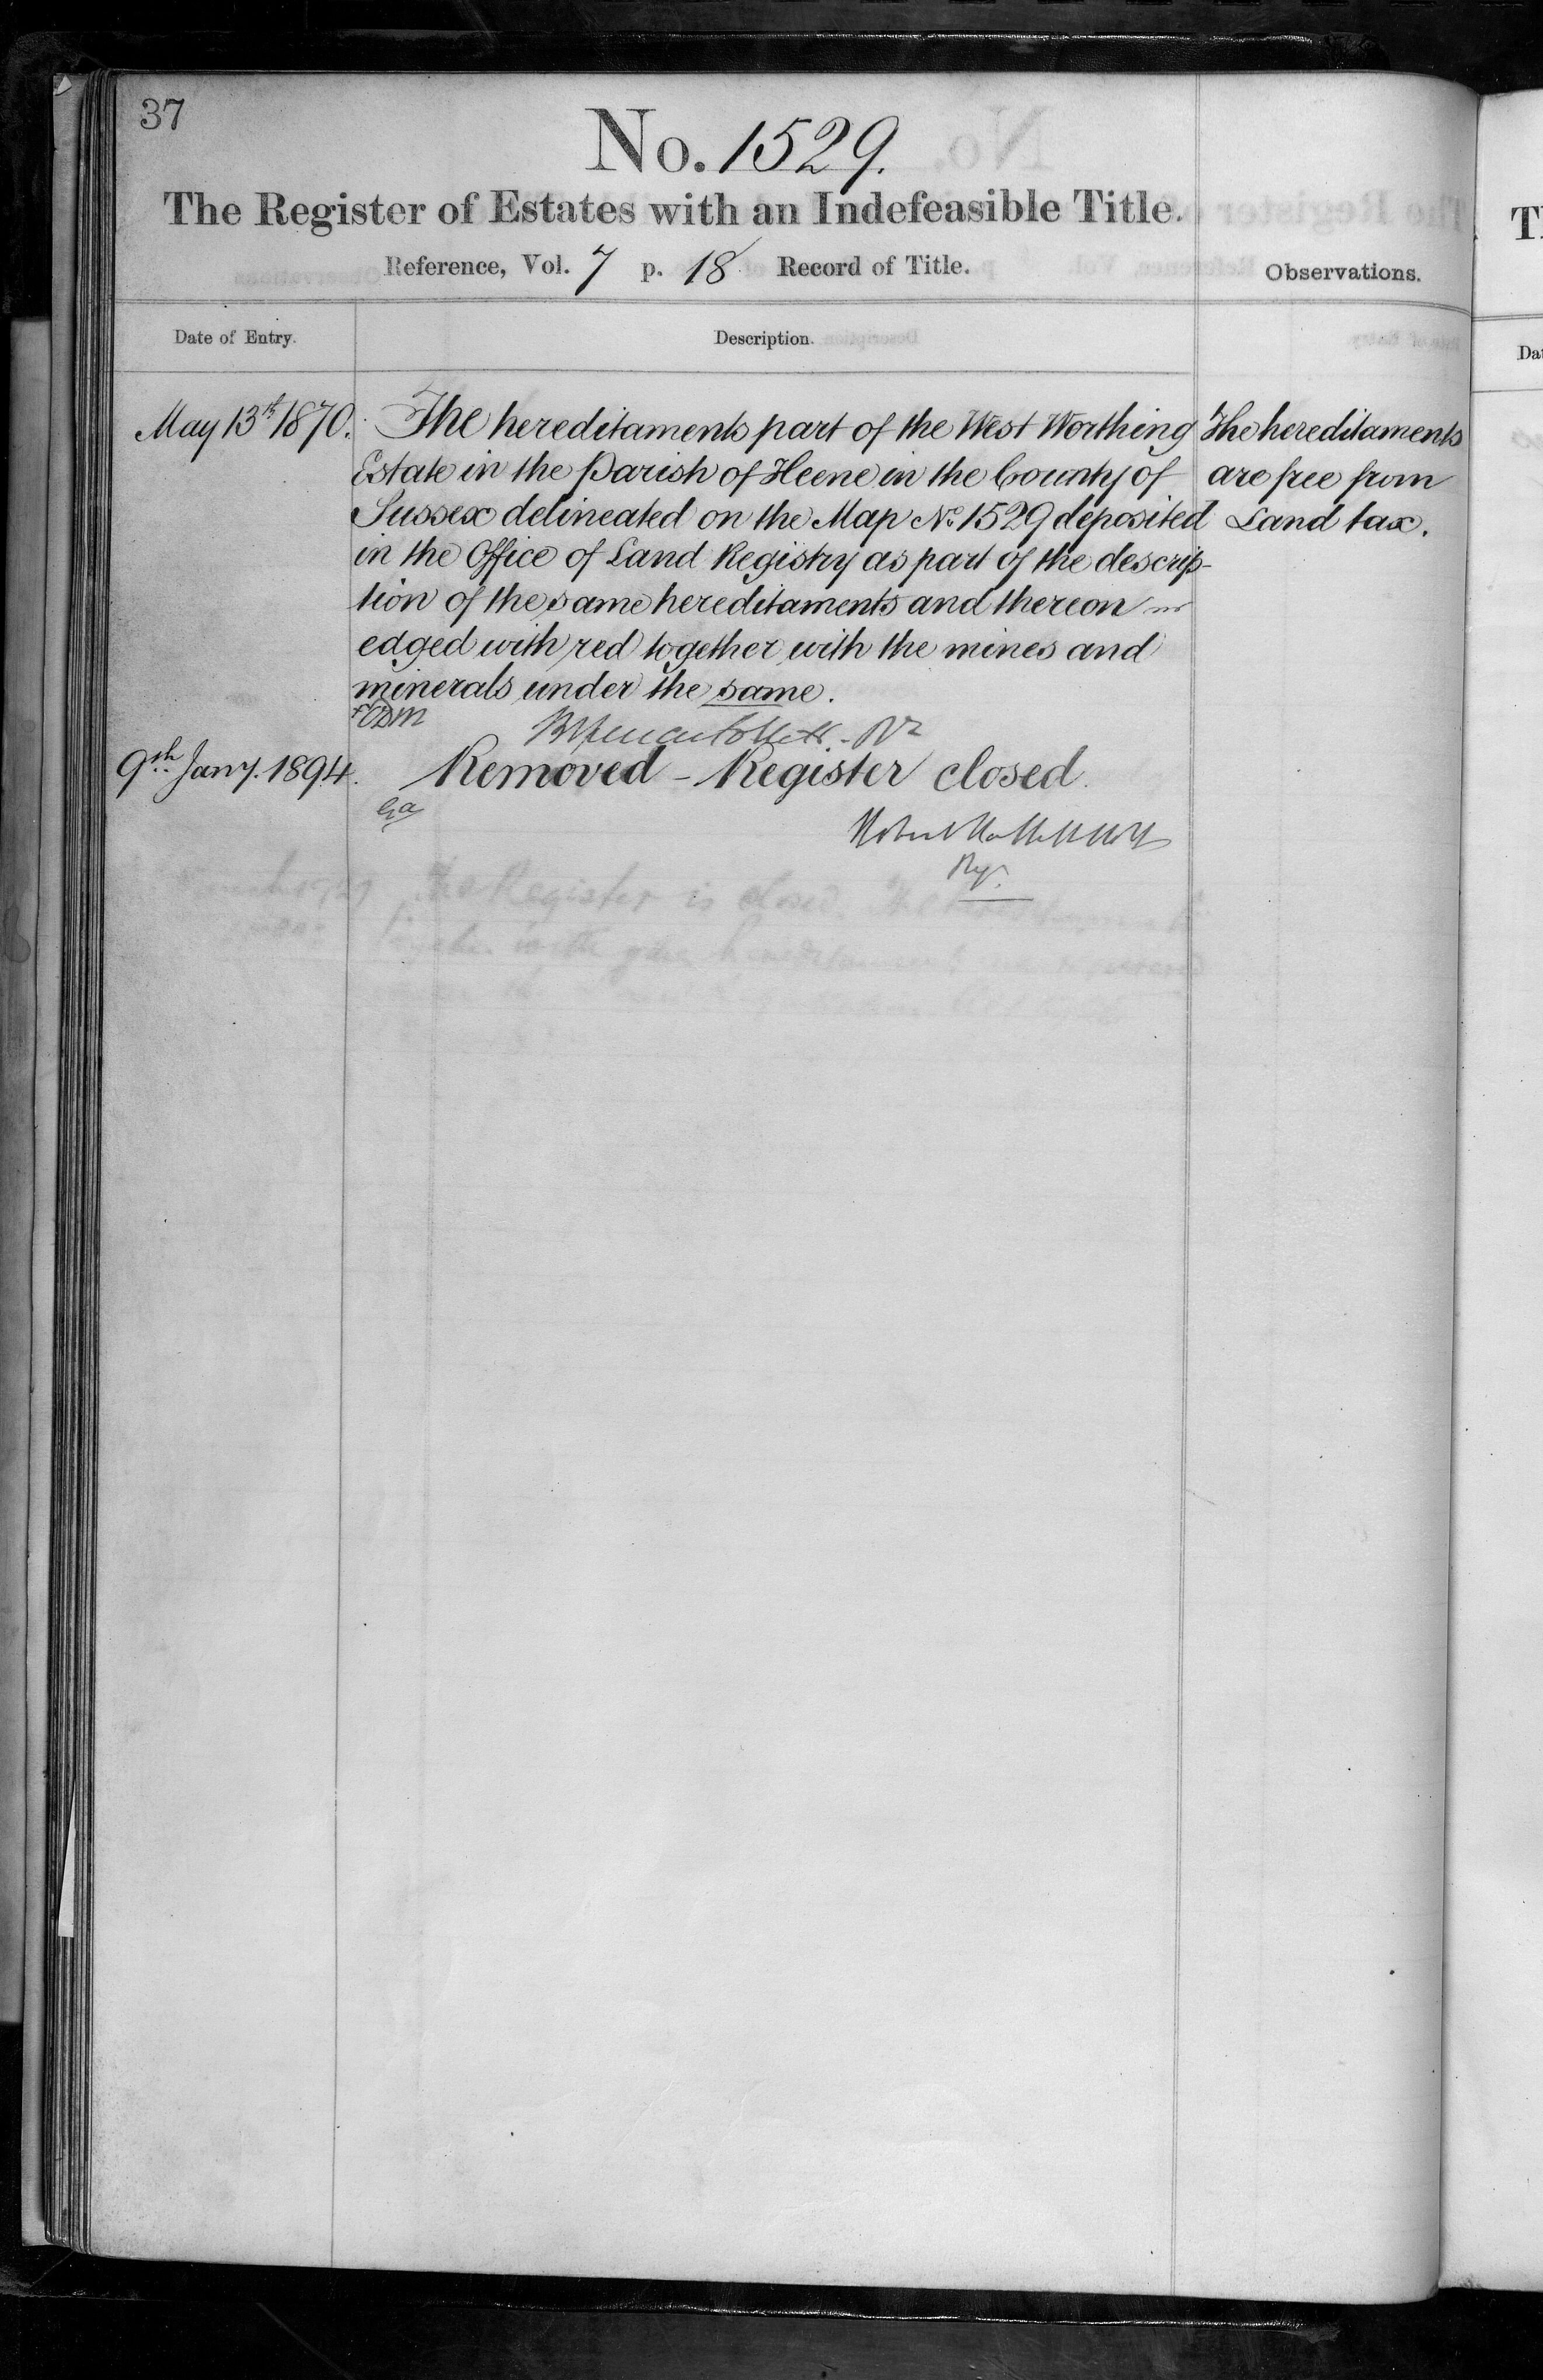 37
No. 1529.
The Register of Estates with an Indefeasible Title.
Reference, Vol. 7 p. 18 Record of Title.
Observations.
Date of Entry.
Description.
May 13th 1870.
The hereditaments part of the West Worthing
Estate in the Parish of Heene in the County of
Sussex delineated on the Map No. 1529 deposited
in the Office of Land Registry as part of the descrip-
tion of the same hereditaments and thereon
edged with red together with the mines and
minerals under the same.
The hereditaments
are free from
Land tax.
9th Jany. 1894.
Removed - Register closed.
The Register is closed.
with